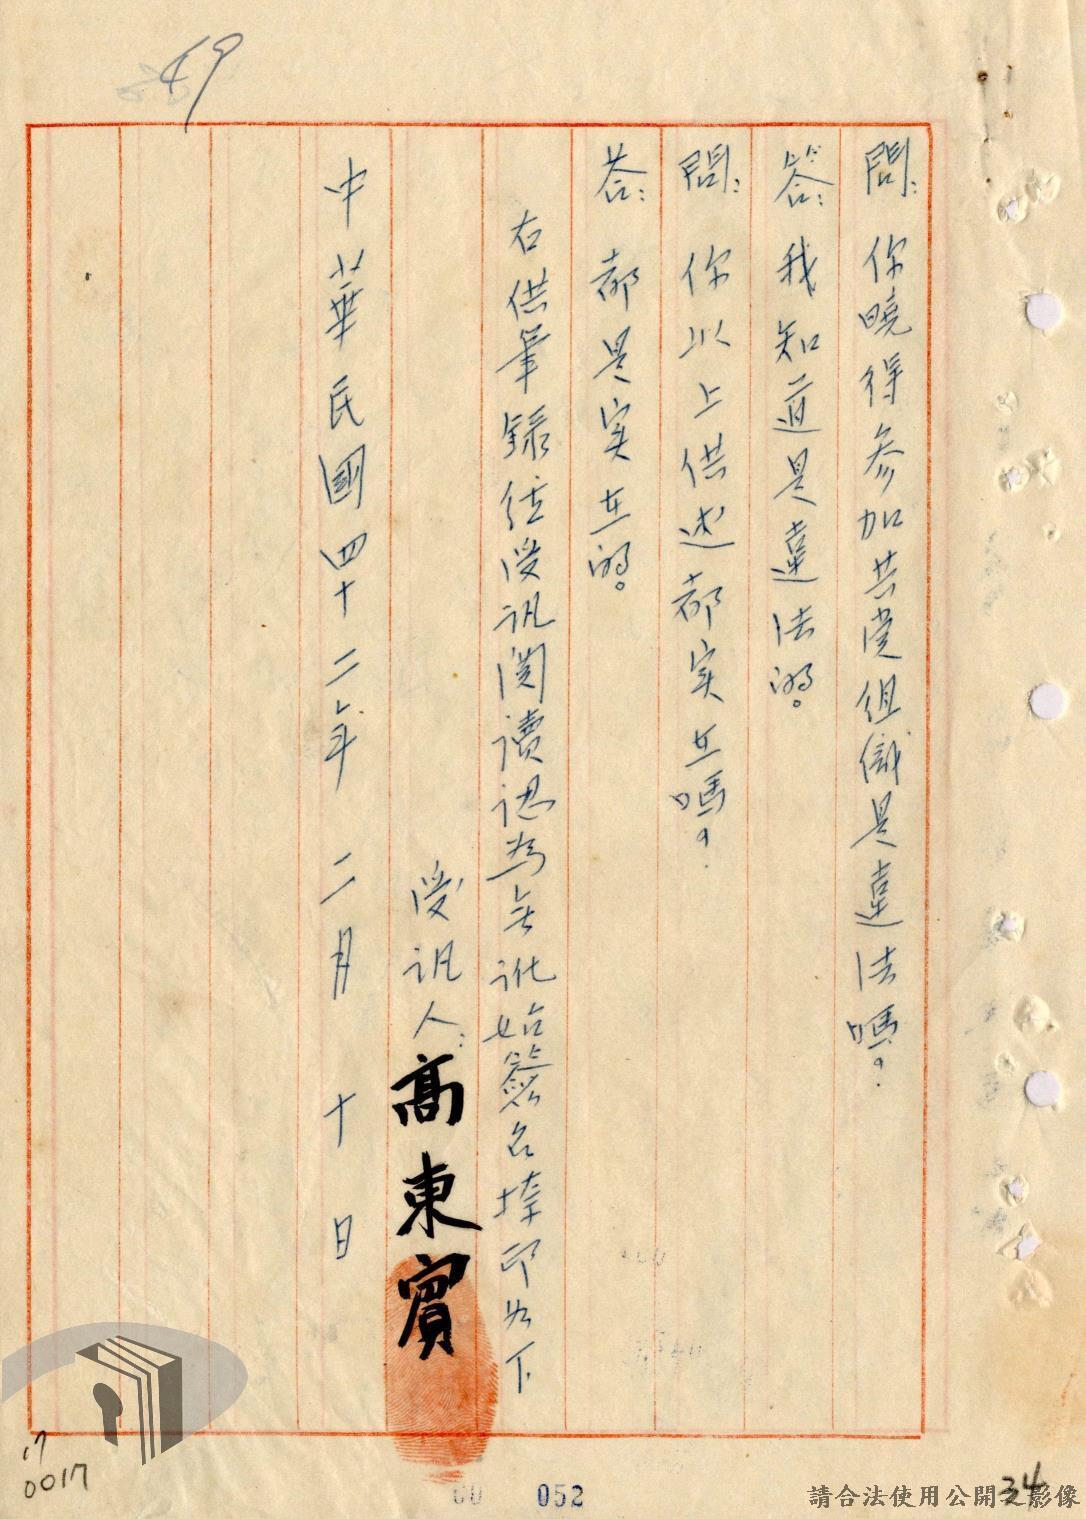 49
問：你曉得參加共党組織是違法嗎？
答：我知道是違法的。
問：你以上供述都实在嗎？
答：都是实在的。
右供筆錄經受訊閱讀認為無訛始簽名捺印如下
受訊人：高東賓
中華民國四十二年二月十日
17
0017
052
34
請合法使用公開之影像